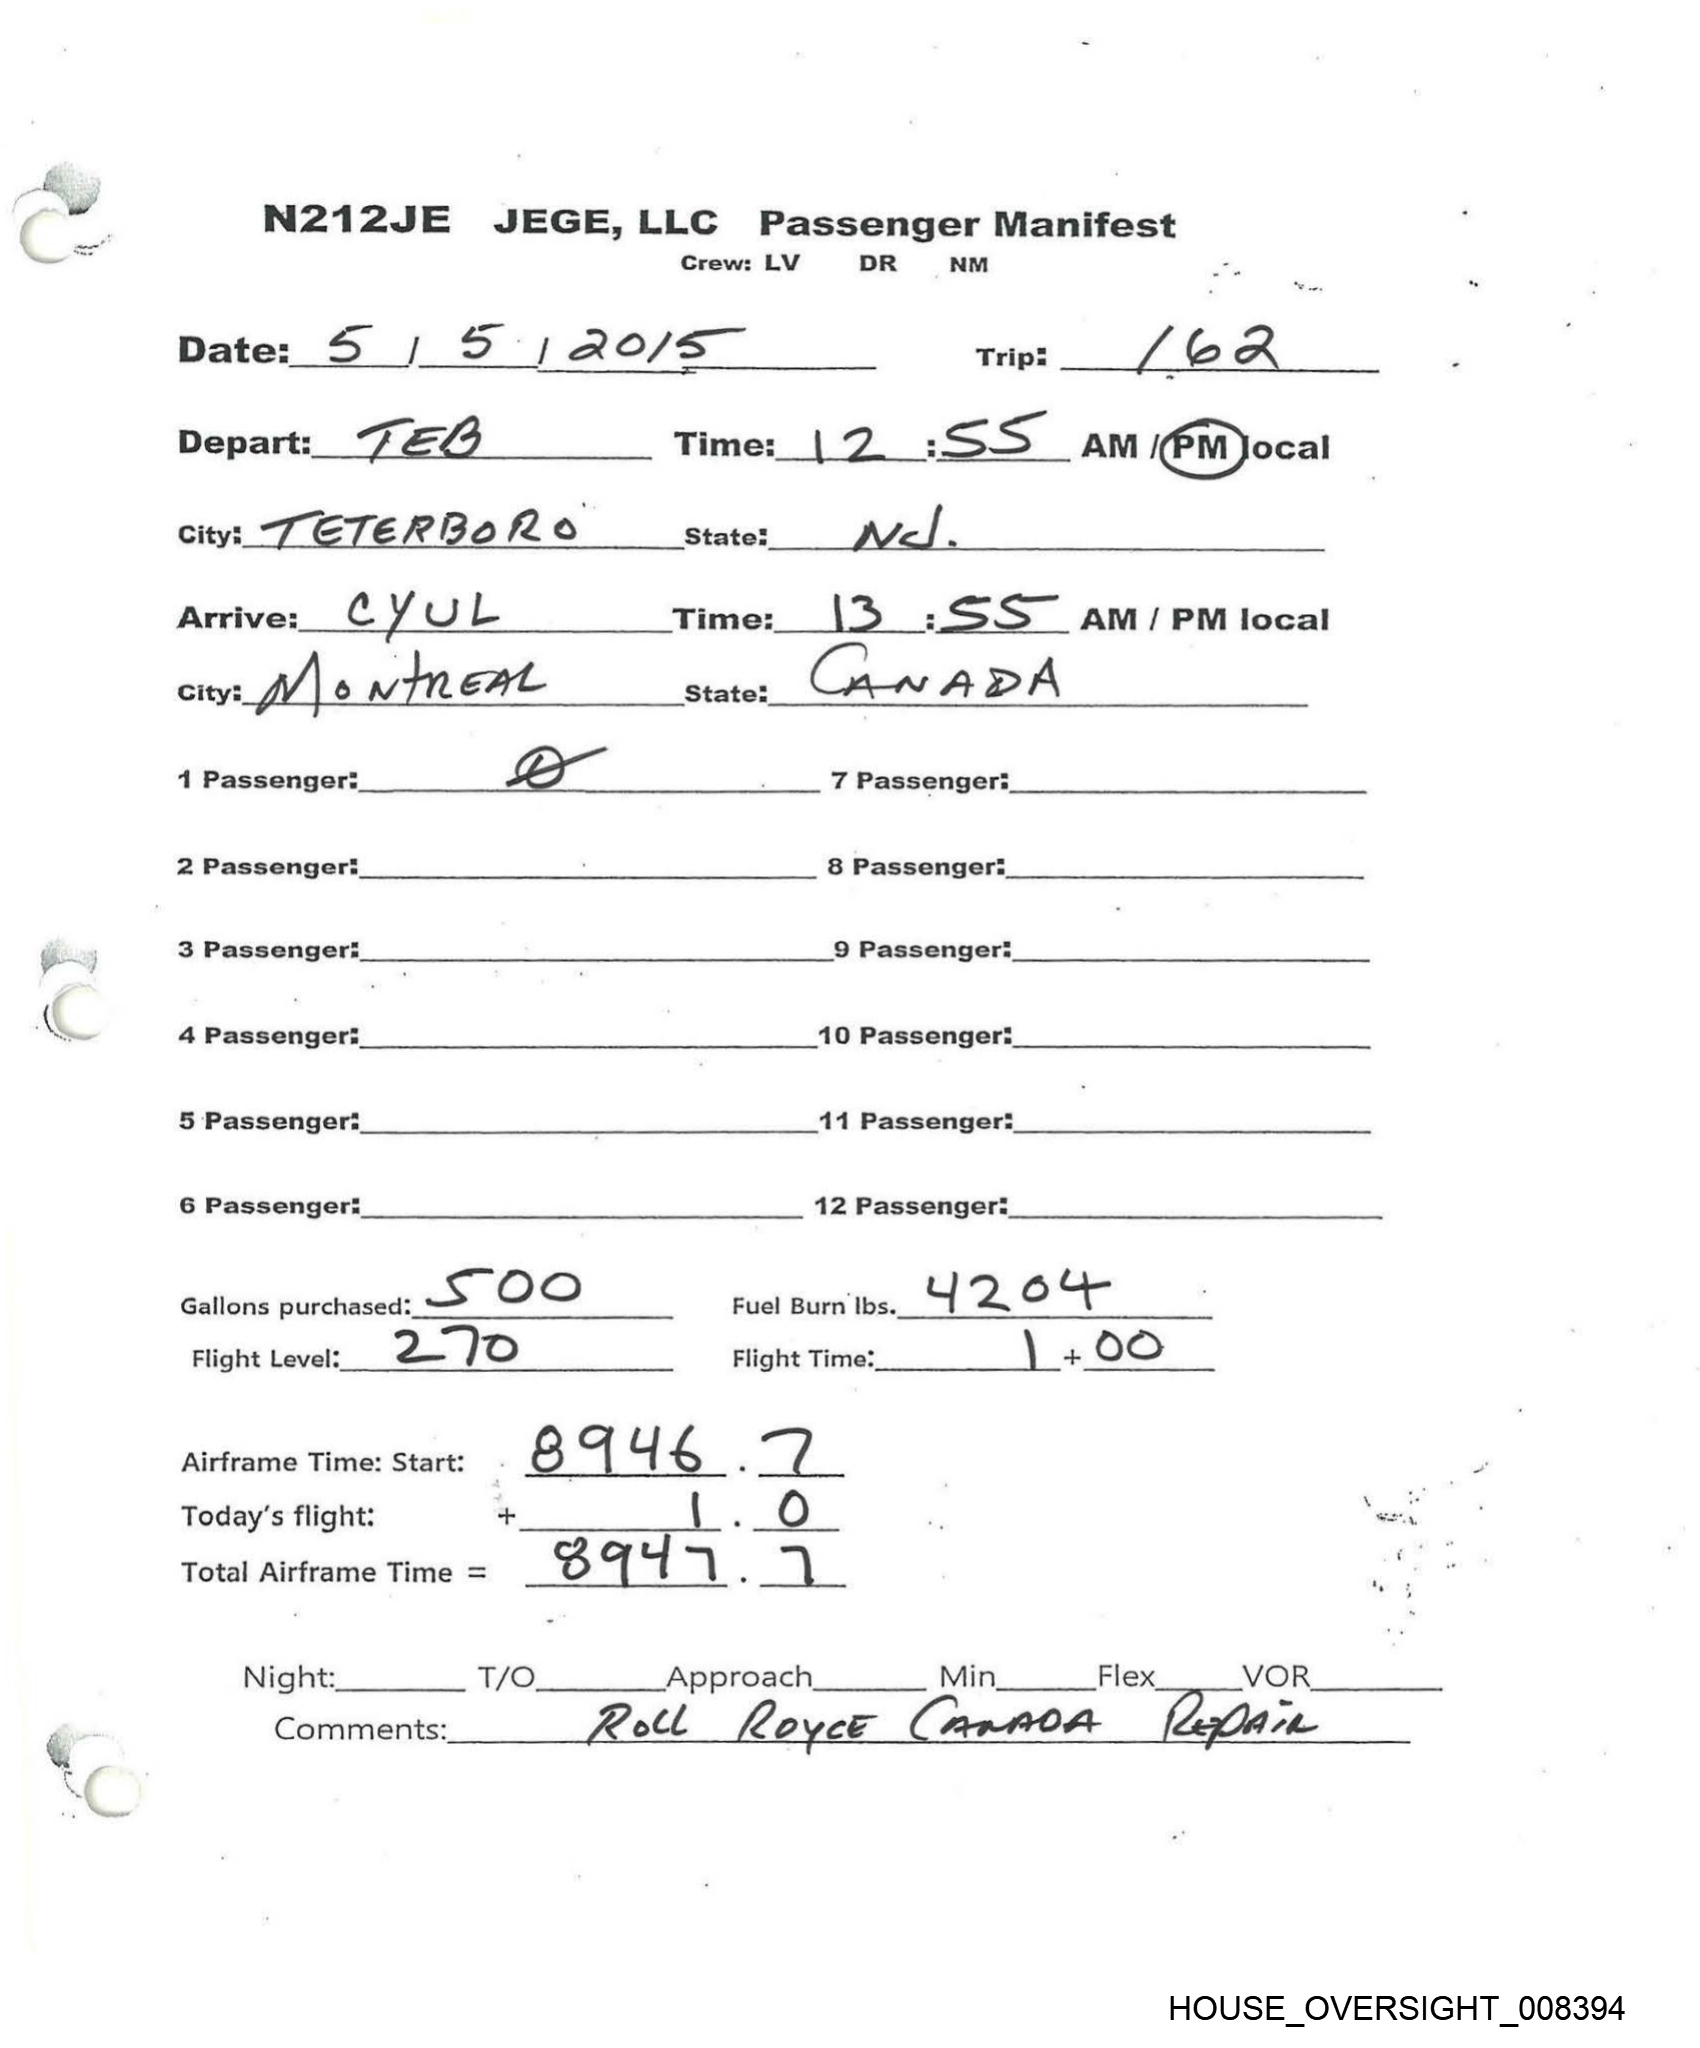 N212JE JEGE, LLC Passenger Manifest
Crew: LV DR NM
Date: 5 / 5 / 2015 Trip: 162
Depart: TEB Time: 12 : 55 AM / PM local
City: TETERBORO State: NJ.
Arrive: CYUL Time: 13 : 55 AM / PM local
City: MONTREAL State: CANADA
1 Passenger: 7 Passenger:
2 Passenger: 8 Passenger:
3 Passenger: 9 Passenger:
4 Passenger: 10 Passenger:
5 Passenger: 11 Passenger:
6 Passenger: 12 Passenger:
Gallons purchased: 500 Fuel Burn lbs. 4204
Flight Level: 270 Flight Time: 1 + 00
Airframe Time: Start: 8946 . 7
Today's flight: + 1 . 0
Total Airframe Time = 8947 . 7
Night: T/O Approach Min Flex VOR
Comments: ROLL ROYCE CANADA REPAIR
HOUSE_OVERSIGHT_008394